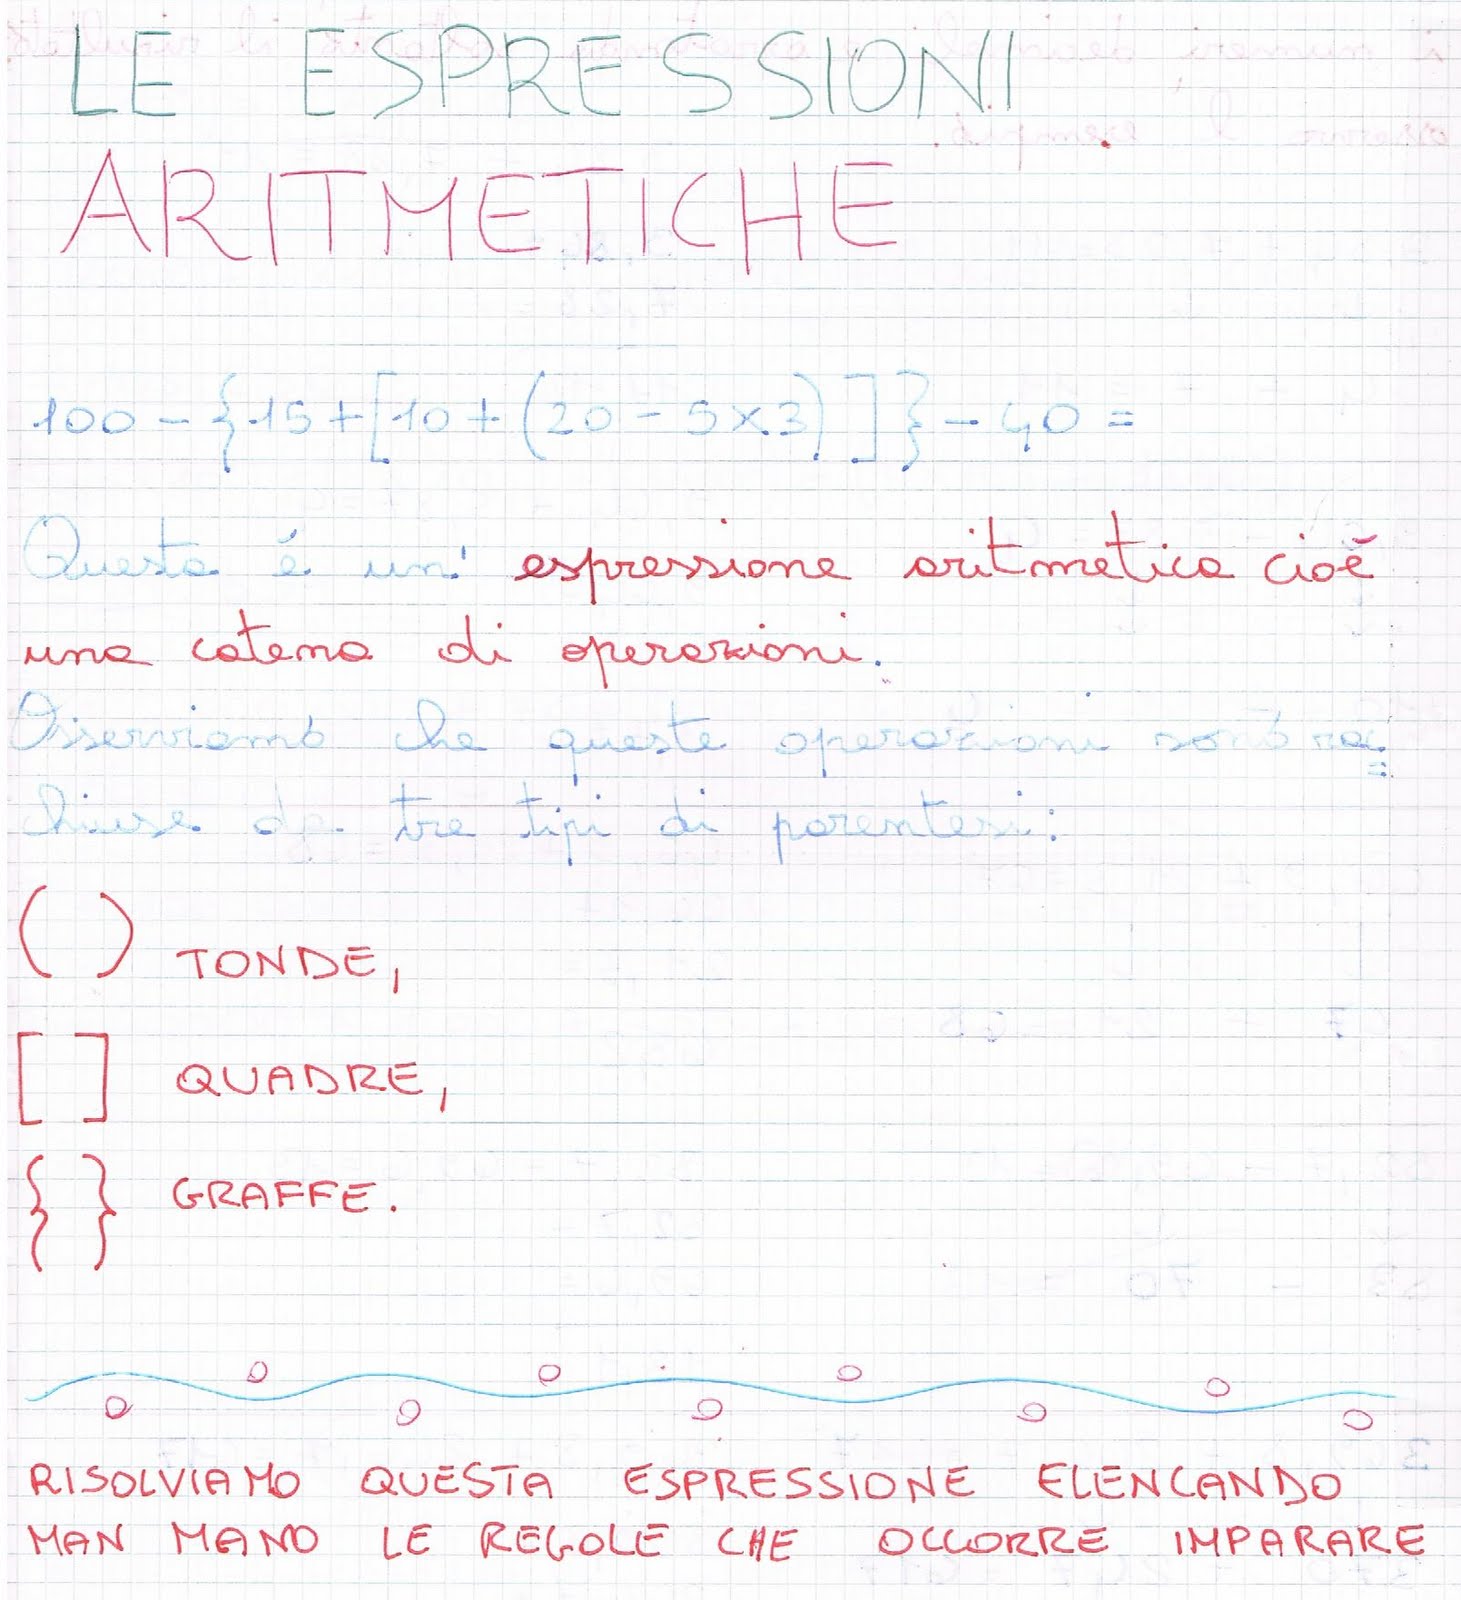 LE ESPRESSIONI
ARITMETICHE
100 - {15 + [10 + (20 - 5 x 3) ]} - 40 =
Questa é un' espressione aritmetica cioè
una catena di operazioni.
Osserviamo che queste operazioni sono rac=
chiuse da tre tipi di parentesi:
( ) TONDE,
[ ] QUADRE,
{ } GRAFFE.
RISOLVIAMO QUESTA ESPRESSIONE ELENCANDO
MAN MANO LE REGOLE CHE OCCORRE IMPARARE